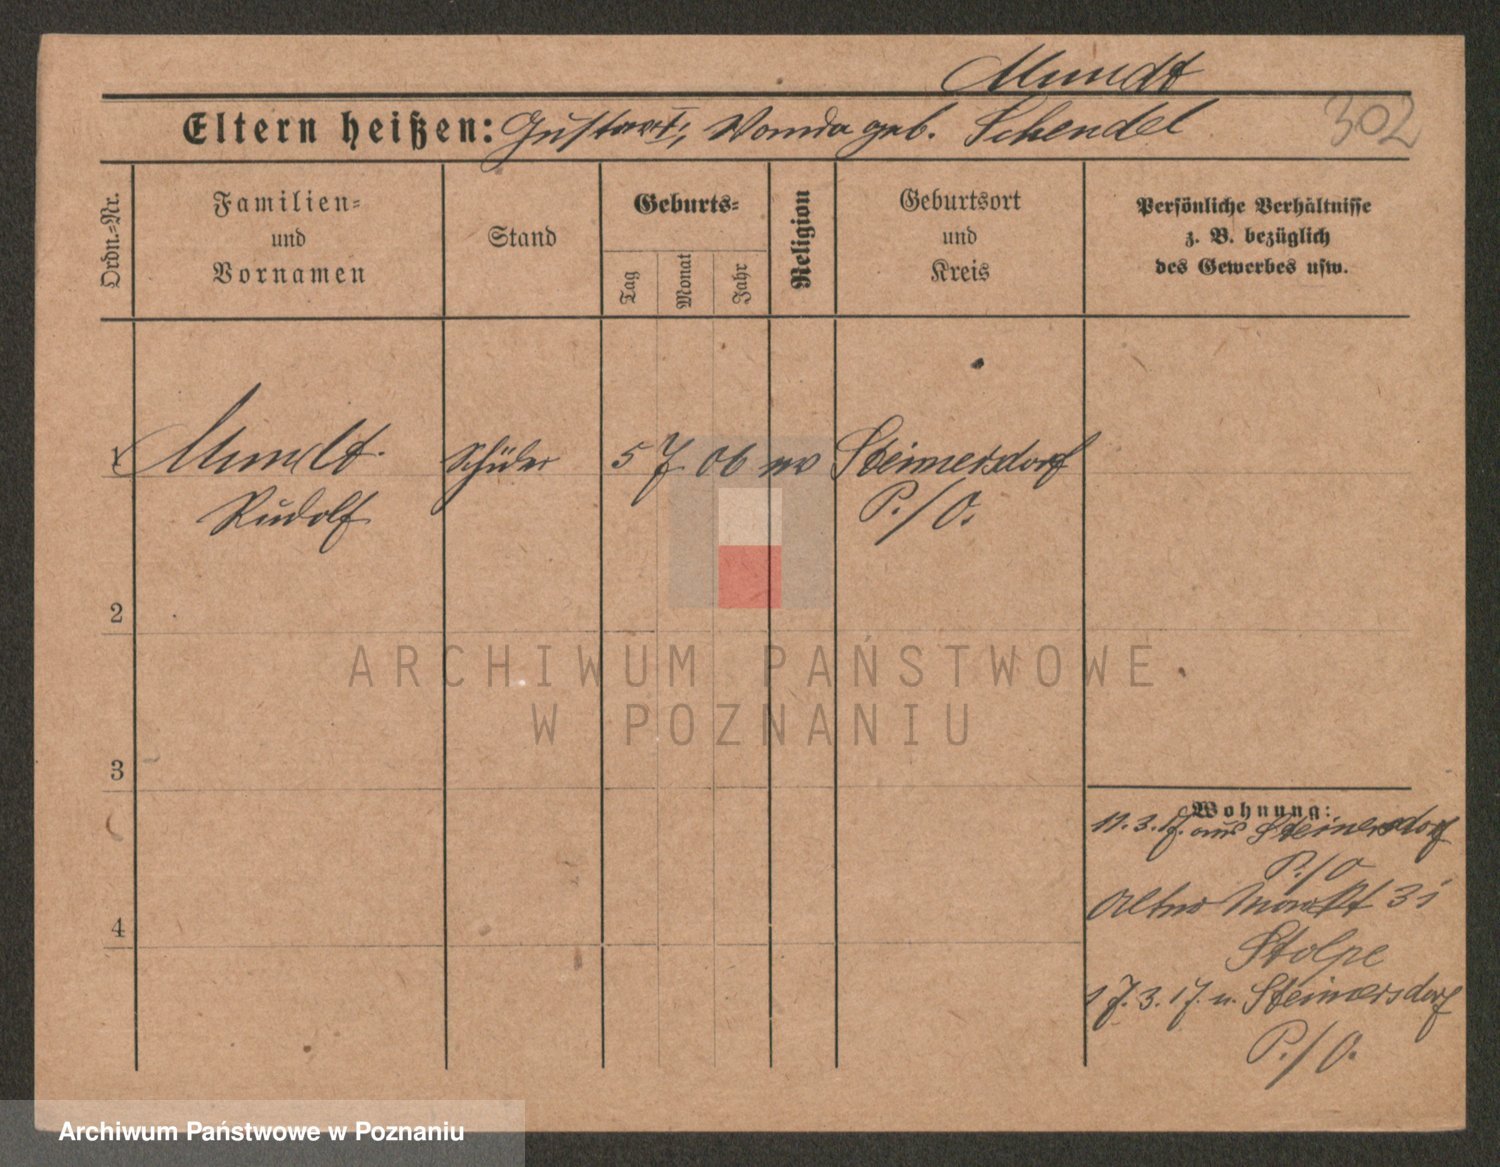 Mundt
Eltern heißen: Gustav, Wanda geb. Schendel
302
Ordn.=Nr.
Familien=
und
Vornamen
Stand
Geburts=
Tag
Monat
Jahr
Religion
Geburtsort
und
Kreis
Persönliche Verhältnisse
z. B. bezüglich
des Gewerbes usw.
1
Mundt
Schüler
5
7
06
ev
Steinersdorf
Rudolf
P./O.
2
ARCHIWUM PAŃSTWOWE
W POZNANIU
3
Wohnung:
11.3.17. aus Steinersdorf
P./O
Alter Markt 31
4
Stolpe
17.3.17. n. Steinersdorf
P./O.
Archiwum Państwowe w Poznaniu